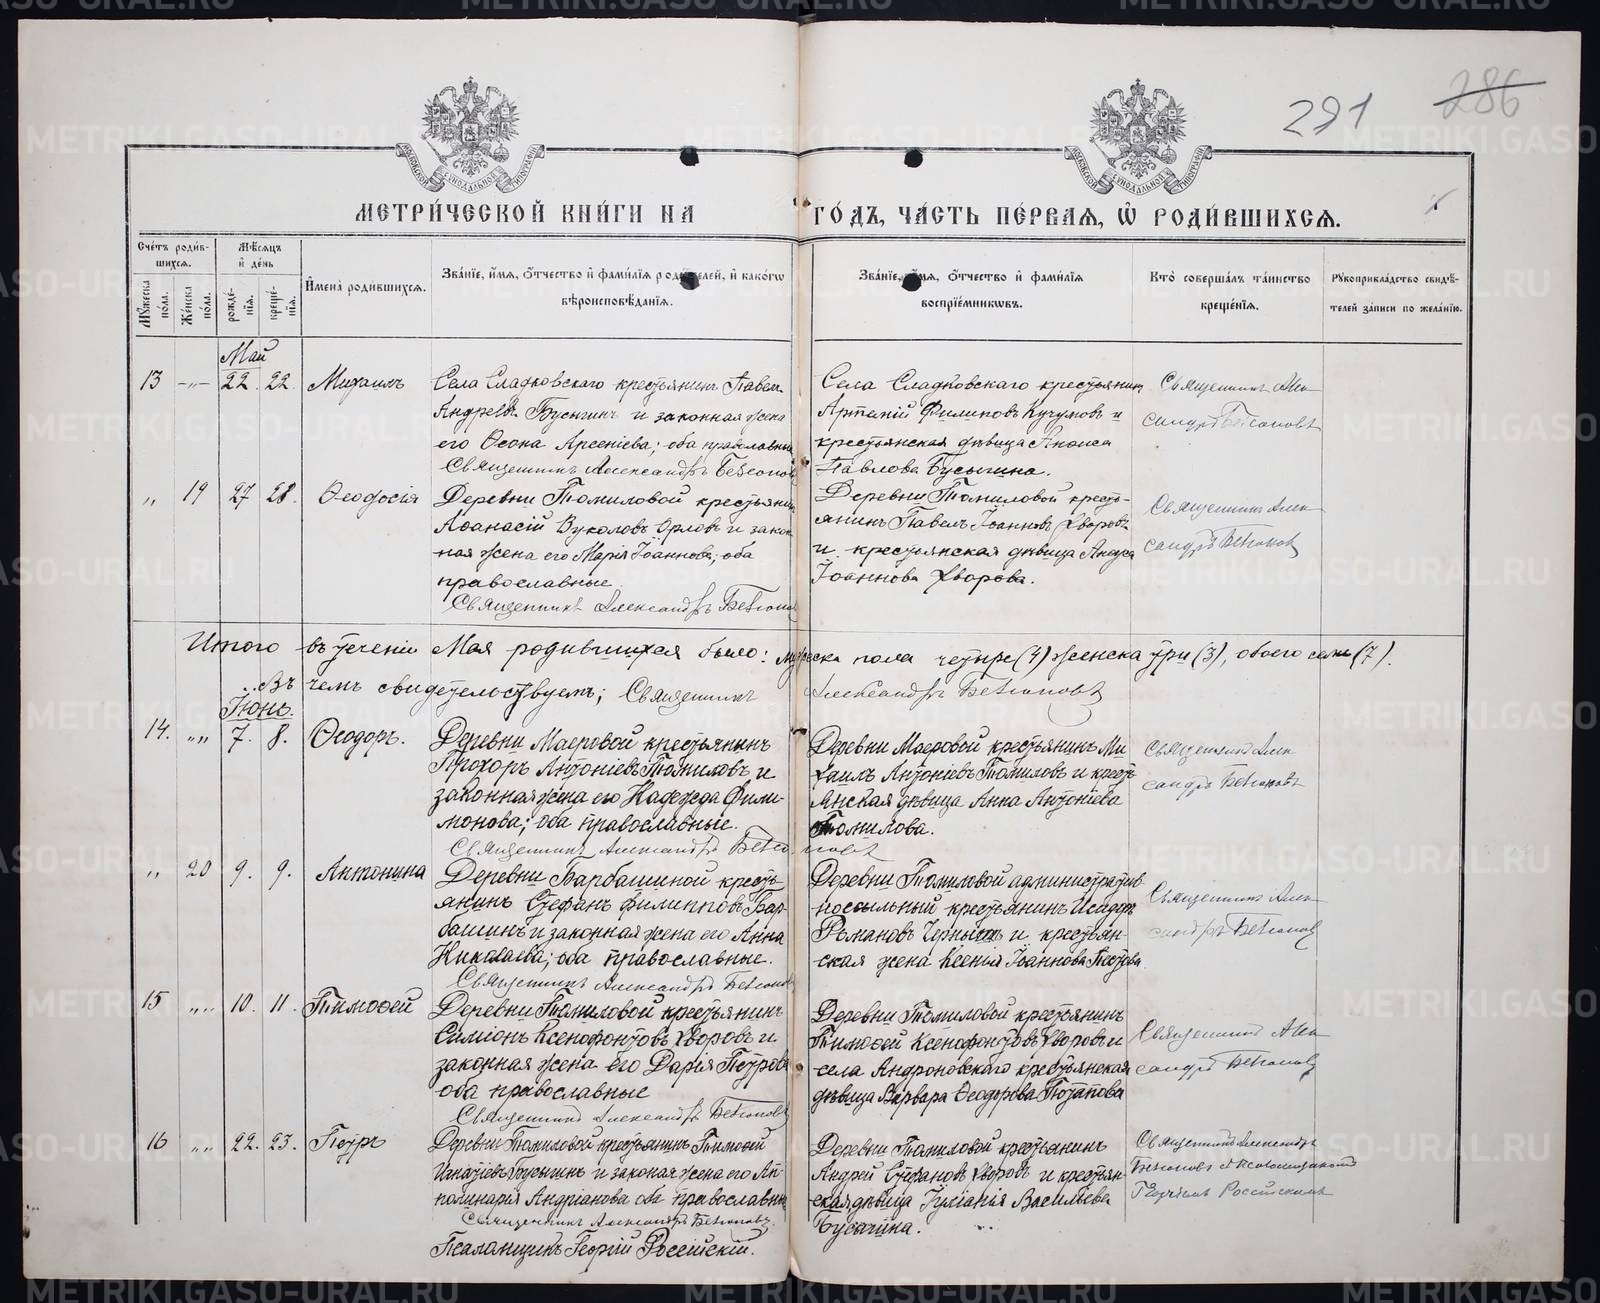 291 286
МЕТРИ́ЧЕСКОЙ КНИ́ГИ НА ГО́ДЪ, ЧА́СТЬ ПЕ́РВАЯ, Ѽ РОДИ́ВШИХСЯ.
Сче́тъ роди́в-
шихся.
Мѣ́сяцъ
и҆ де́нь
Му́жеска по́ла.
Же́нска по́ла.
рожде́-
нїя.
креще́-
нїя.
И҆мена̀ роди́вшихся.
Зва́нїе, и҆́мя, ѻ҆́тчество и҆ фами́лїя роди́телей, и҆ како́гѡ
вѣроисповѣ́данїя.
Зва́нїе, и҆́мя, ѻ҆́тчество и҆ фами́лїя
воспрїе́мниковъ.
Кто̀ соверша́лъ та́инство
креще́нїя.
Рꙋкоприкла́дство свидѣ́-
телей за́писи по жела́нїю.
Май
13 -„- 22. 22. Михаилъ
Села Сладковскаго крестьянинъ Павелъ
Андреевъ Бусыгинъ и законная жена
его Ѳеона Арсеніева; оба православные
Священникъ Александръ
Села Сладковскаго крестьянинъ
Артемій Филиповъ Кучумовъ и
крестьянская дѣвица Анѳиса
Павлова Бусыгина.
Священникъ Алек-
сандръ
„ 19 27 28. Ѳеодосія
Деревни Томиловой крестьянинъ
Аѳанасій Вуколовъ Орловъ и закон-
ная жена его Марія Іоаннова; оба
православные.
Священникъ Александръ
Деревни Томиловой кресть-
янинъ Павелъ Іоанновъ Хворовъ
и крестьянская дѣвица
Іоаннова Хворова.
Священникъ Алек-
сандръ
Итого въ теченіи Мая родившихся было: мужеска пола четыре (4) женска три (3), обоего семь (7).
Въ чемъ свидетельствуемъ; Священникъ Александръ
Іюнь.
14. „„ 7. 8. Ѳеодоръ.
Деревни Маеровой крестьянинъ
Прохоръ Антоніевъ Томиловъ и
законная жена его Надежда Фили-
монова; оба православные.
Священникъ Александръ
Деревни Маеровой крестьянинъ Ми-
хаилъ Антоніевъ Томиловъ и кресть-
янская дѣвица Анна Антоніева
Томилова.
Священникъ Алек-
сандръ
„ 20 9. 9. Антонина
Деревни Барбашиной кресть-
янинъ Стефанъ Филипповъ Бар-
башинъ и законная жена его Анна
Николаева; оба православные.
Священникъ Александръ
Деревни Томиловой административ-
носсыльный крестьянинъ Исидоръ
Романовъ и крестьян-
ская жена Ксенія Іоаннова
Священникъ Алек-
сандръ
15 „„ 10. 11. Тимоѳей
Деревни Томиловой крестьянинъ
Симеонъ Ксенофонтовъ Хворовъ и
законная жена его Дарія Петрова
оба православные
Священникъ Александръ
Деревни Томиловой крестьянинъ
Тимоѳей Ксенофонтовъ Хворовъ и
села Андроновскаго крестьянская
дѣвица Варвара Ѳеодорова Потапова
Священникъ Алек-
сандръ
16 „„ 22. 23. Петръ
Деревни Томиловой крестьянинъ Тимоѳей
Игнатіевъ Бусыгинъ и законая жена его Ап-
полинарія Андріанова оба православные
Священникъ Александръ
Псаломщикъ Георгій Россійскій.
Деревни Томиловой крестьянинъ
Андрей Стефановъ Хворовъ и крестьян-
ская дѣвица Іуліанія Василіева
Бусыгина.
Священникъ Александръ
съ псаломщикомъ
Георгіемъ Россійскимъ
METRIKI.GASO-URAL.RU